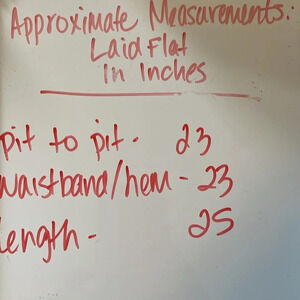 Approximate Measurements:
Laid Flat
In Inches
pit to pit - 23
waistband/hem - 23
Length - 25